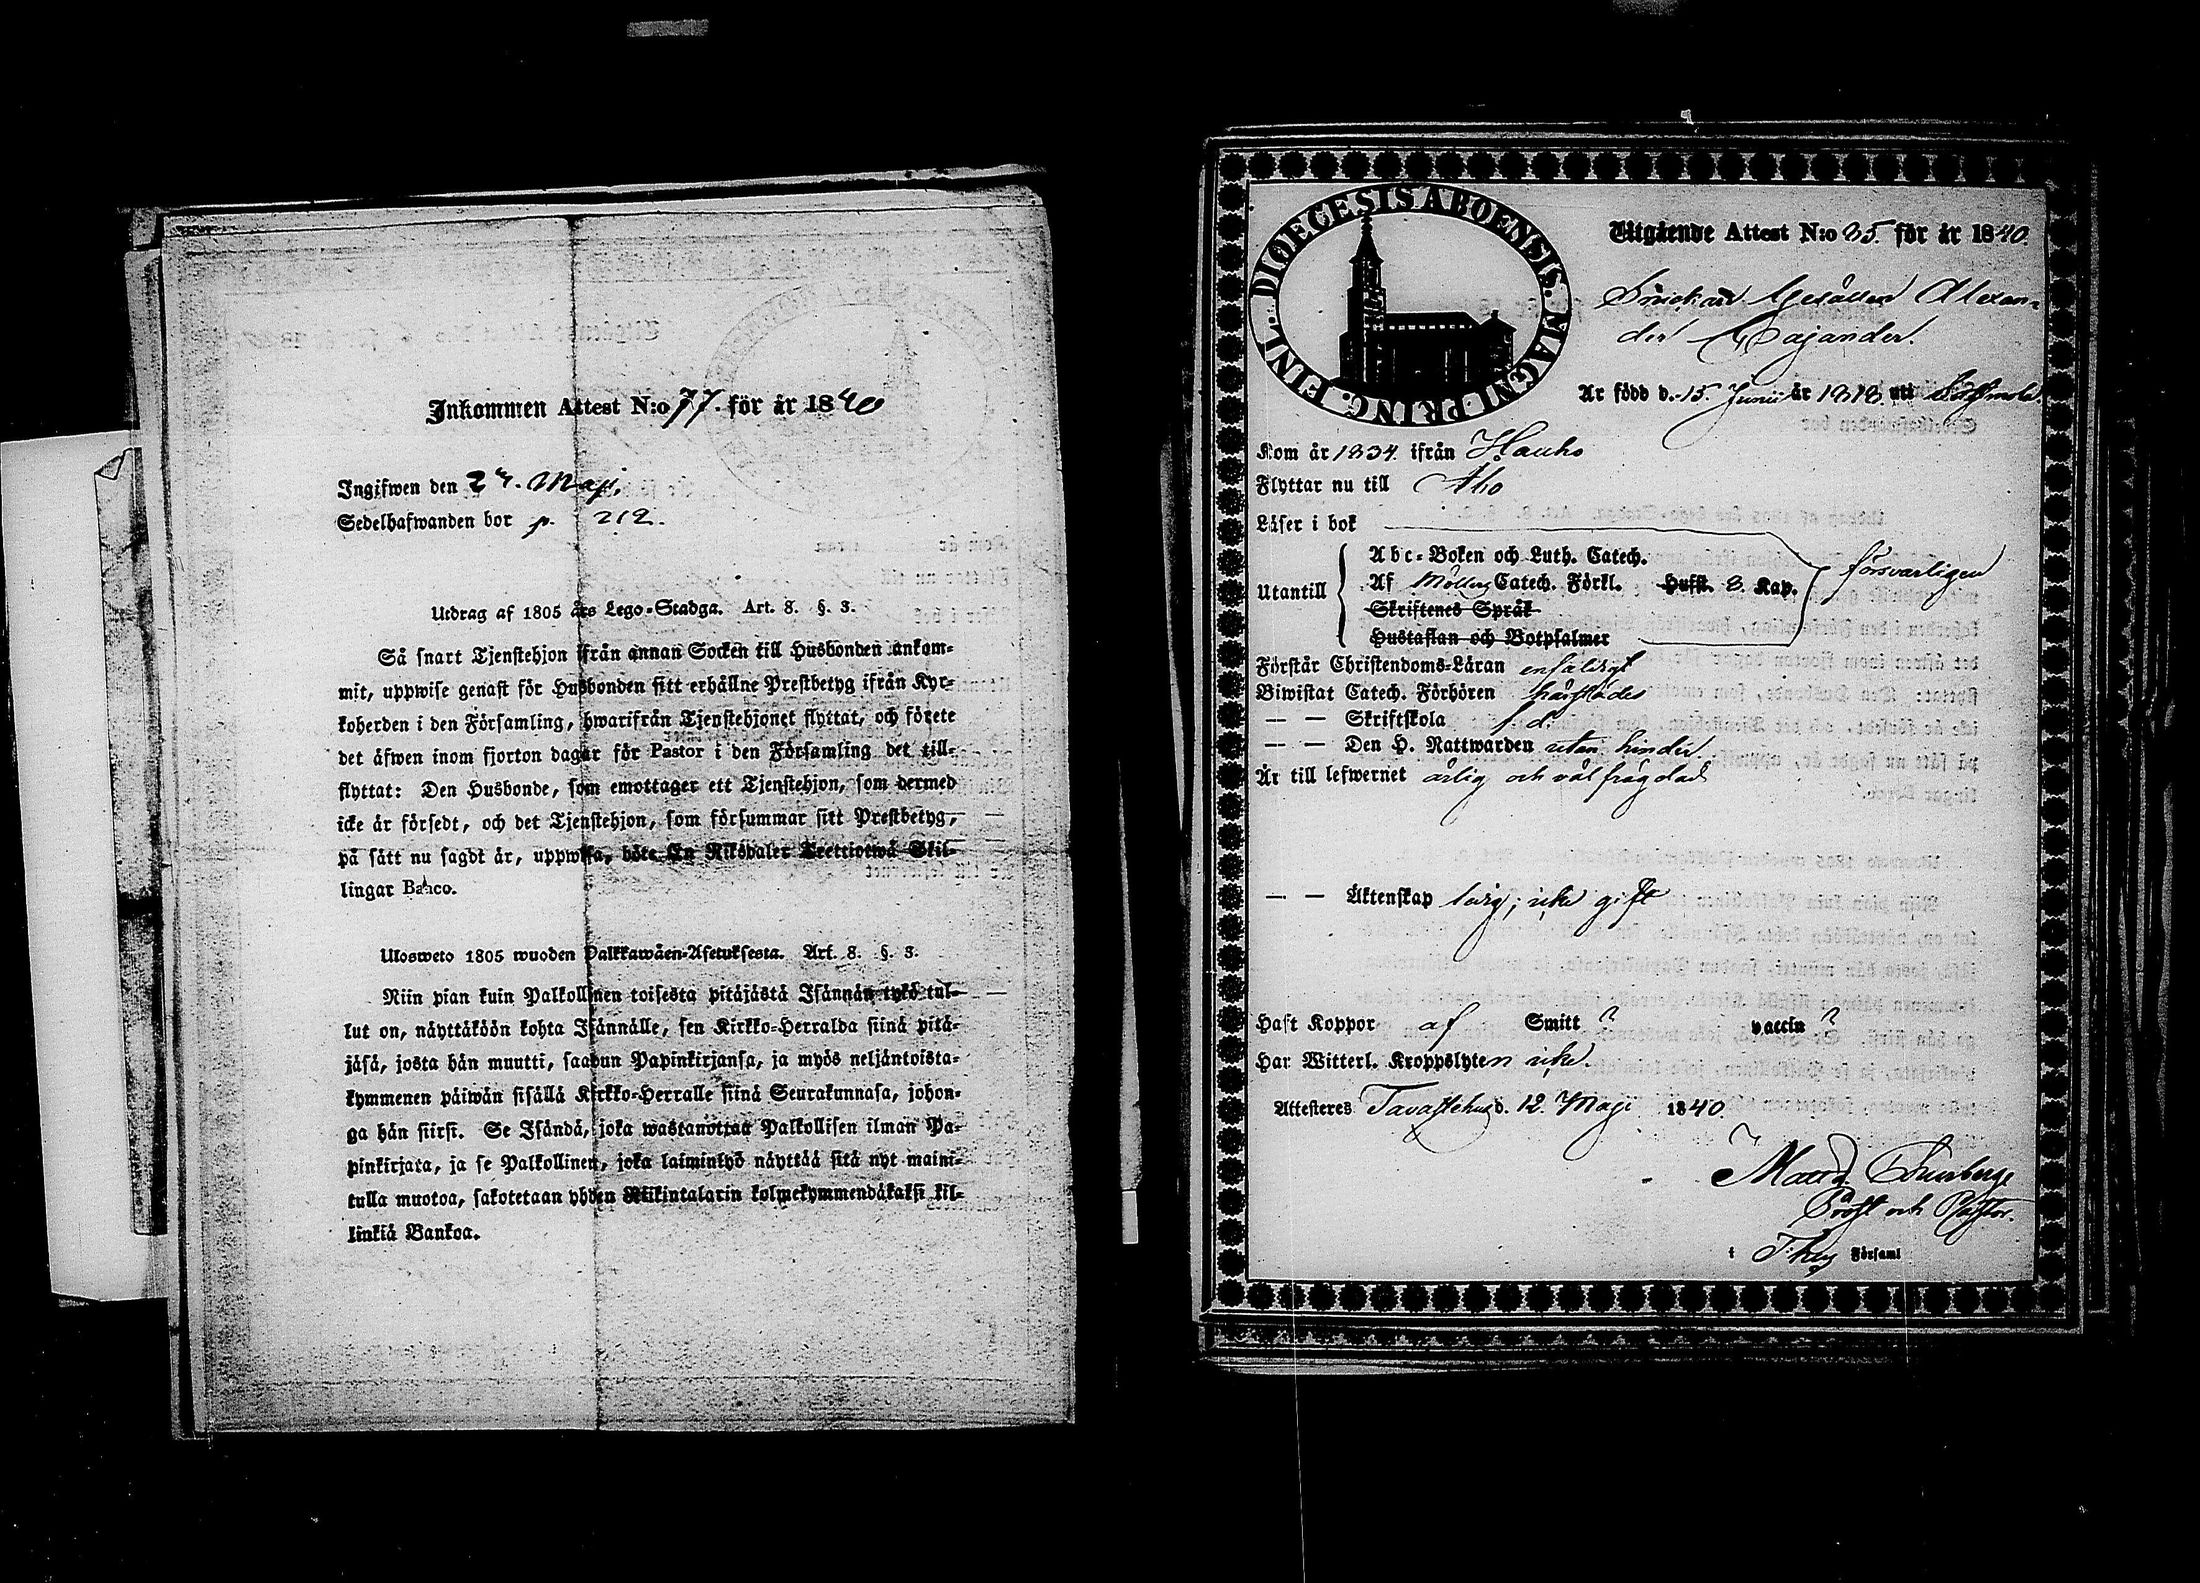 Inkommen Attest N:o 77. för år 1840
Ingifwen den 24. Maji,
Sedelhafwanden bor p. 212.
Utdrag af 1805 års Lego-Stadga. Art. 8. §. 3.
Så snart Tjenstehjon ifrån annan Socken till Husbonden ankom-
mit, uppwise genast för Husbonden sitt erhållne Prestbetyg ifrån Kyr-
koherden i den Församling, hwarifrån Tjenstehjonet flyttat, och förete
det äfwen inom fjorton dagar för Pastor i den Församling det till-
flyttat: Den Husbonde, som emottager ett Tjenstehjon, som dermed
icke är försedt, och det Tjenstehjon, som försummar sitt Prestbetyg,
på sätt nu sagdt är, uppwisa, böte En Riksdaler Trettiotwå Skil-
lingar Banco.
Ulosweto 1805 wuoden Palkkawäen-Asetuksesta. Art. 8. §. 3.
Niin pian kuin Palkollinen toisesta pitäjästä Isännän tykö tul-
lut on, näyttäköön kohta Isännälle, sen Kirkko-Herralda siinä pitä-
jäsä, josta hän muutti, saadun Papinkirjansa, ja myös neljäntoista-
kymmenen päiwän sisällä Kirkko-Herralle siinä Seurakunnasa, johon-
ga hän siirsi. Se Isändä, joka wastanottaa Palkollisen ilman Pa-
pinkirjata, ja se Palkollinen, joka laiminlyö näyttää sitä nyt maini-
tulla muotoa, sakotetaan yhden Riikintalarin kolmekymmendäkaksi kil-
linkiä Bankoa.
DIOECESIS ABOENSIS. MAGNI PRINC. FINL.
Utgående Attest N:o 35. för år 1840.
Snickare Gesällen Alexan-
der Majander.
Är född d. 15. Junii år 1818. uti
Kom år 1834. ifrån Hauho
Flyttar nu till Åbo
Läser i bok
Utantill
Abc-Boken och Luth. Catech.
Af Möllers Catech. Förkl. Hufst. 3. Kap. försvarligen
Skriftenes Språk
Hustaflan och Botpsalmer
Förstår Christendoms-Läran enfaldigt
Biwistat Catech. Förhören härstädes
— — Skriftskola s. d.
— — Den H. Nattwarden utan hinder
Är till lefwernet ärlig och väl frägdad
— — Äktenskap ledig; icke gift
Haft Koppor af Smitt ? vaccin ?
Har Witterl. Kroppslyten icke.
Attesteres Tavastehus d. 12. Maji 1840.
Prost och Pastor.
i Församl